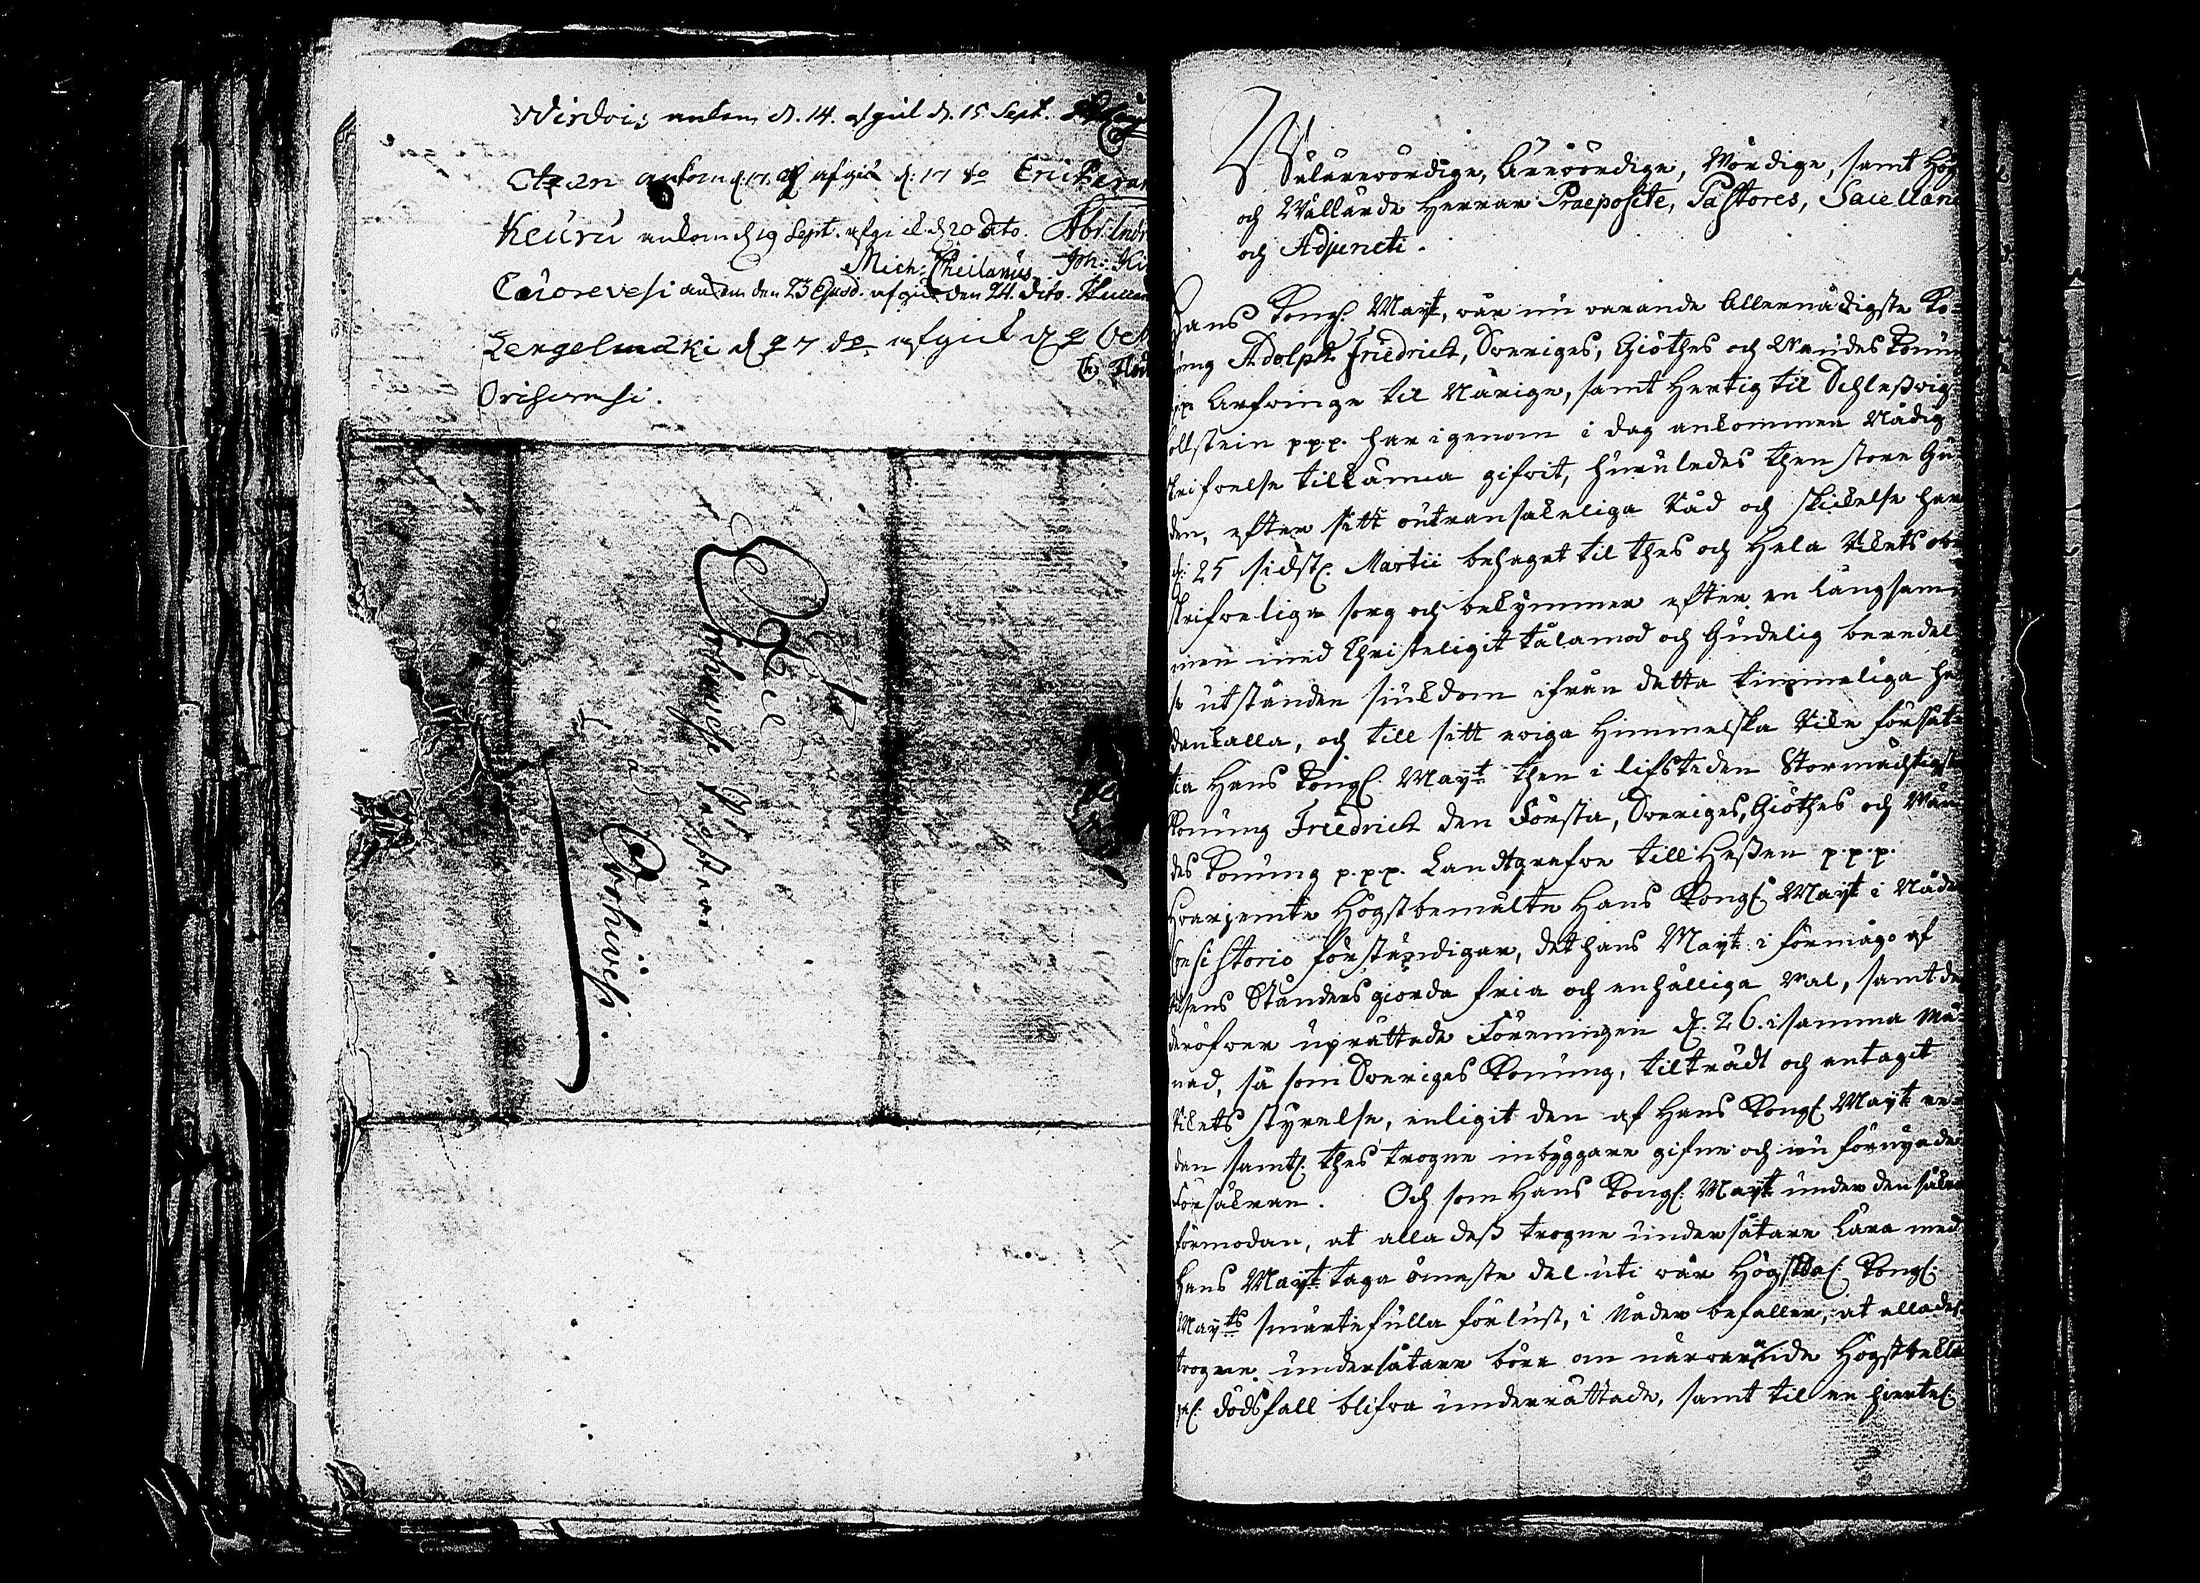 Wirdois ankom d. 14. afgick d. 15 Sept.
Etzäri ankom d. 17. afgick d. 17 do Eric
Keuru ankom d 19 Sept. afgick d 20 dito. Abr. Indr
Mich: Cheilanus Joh:
Cuorevesi ankom den 23 Ejusd. afgick den 24. dito.
Lengelmäki d 27 do afgick d 2 Oct
Orihwesi.
Orihwesi
Orihwesi.
Wälärewördige, Ärewördige, Wördige, samt Hög
och Wällärde Herrar Praeposite, Pastores, Sacellani
och Adjuncti.
Hans Kongl. Mayt, wår nu warande Allernådigste Ko-
nung Adolph Friedrich, Sweriges, Giöthes och Wendes Konung
p.p. Arfwinge til Norige, samt Hertig til Schleswig
ollstein p.p.p. har igenom i dag ankommen Nådig
skrifwelse tillkänna gifwit, huruledes then store Gu-
den, efter sitt outransakeliga Råd och skickelse har
d. 25 sidstl. Martii behaget til thes och hela Rikets obe
skrifwelige sorg och bekymmer efter en långsam,
men med Christeligit tålamod och Gudelig beredel-
se utstånden siukdom ifrån detta timmeliga hä
dankalla, och till sitt ewiga Himmelska Rike försät-
tia Hans Kongl. Mayt then i lifstiden Stormächtigste
Konung Friedrich den Första, Sweriges, Giöthes och Wen
des Konung p.p.p. Landtgrefwe till Hessen p.p.p.
Hwarjemte Högstbemälte Hans Kongl. Mayt i Nåder
Consistorio förständigar, det hans Mayt i förmågo af
Riksens Ständers giorda fria och enhälliga Val, samt de
deröfwer uprättade Föreningen d. 26. i samma Må-
nad, så som Sweriges Konung, tilträdt och antagit
Rikets styrelse, enligit den af Hans Kongl. Mayt re-
dan samtl. thes trogne inbyggare gifne och nu förnyade
Försäkran. Och som Hans Kongl. Mayt under den säkra
förmodan, at alla dess trogne undersåtare lära med
Hans Mayt taga ömeste del uti wår Högstsal. Kongl.
Mayts smärtefulla förlust, i Nåder befaller, at alla des
trogne undersåtare böra om närwarande Högstbekla
gl. dödsfall blifwa underrättade, samt til en hiertel.